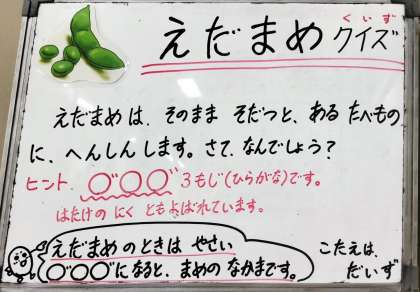 くいず
えだまめクイズ
えだまめは、そのまま そだつと、ある たべもの
に、へんしんします。さて、なんでしょう？
ヒント、○゛○○゛3もじ(ひらがな)です。
はたけの にく ともよばれています。
えだまめのときは やさい
○゛○○゛になると、まめの なかまです。
こたえは、
だいず